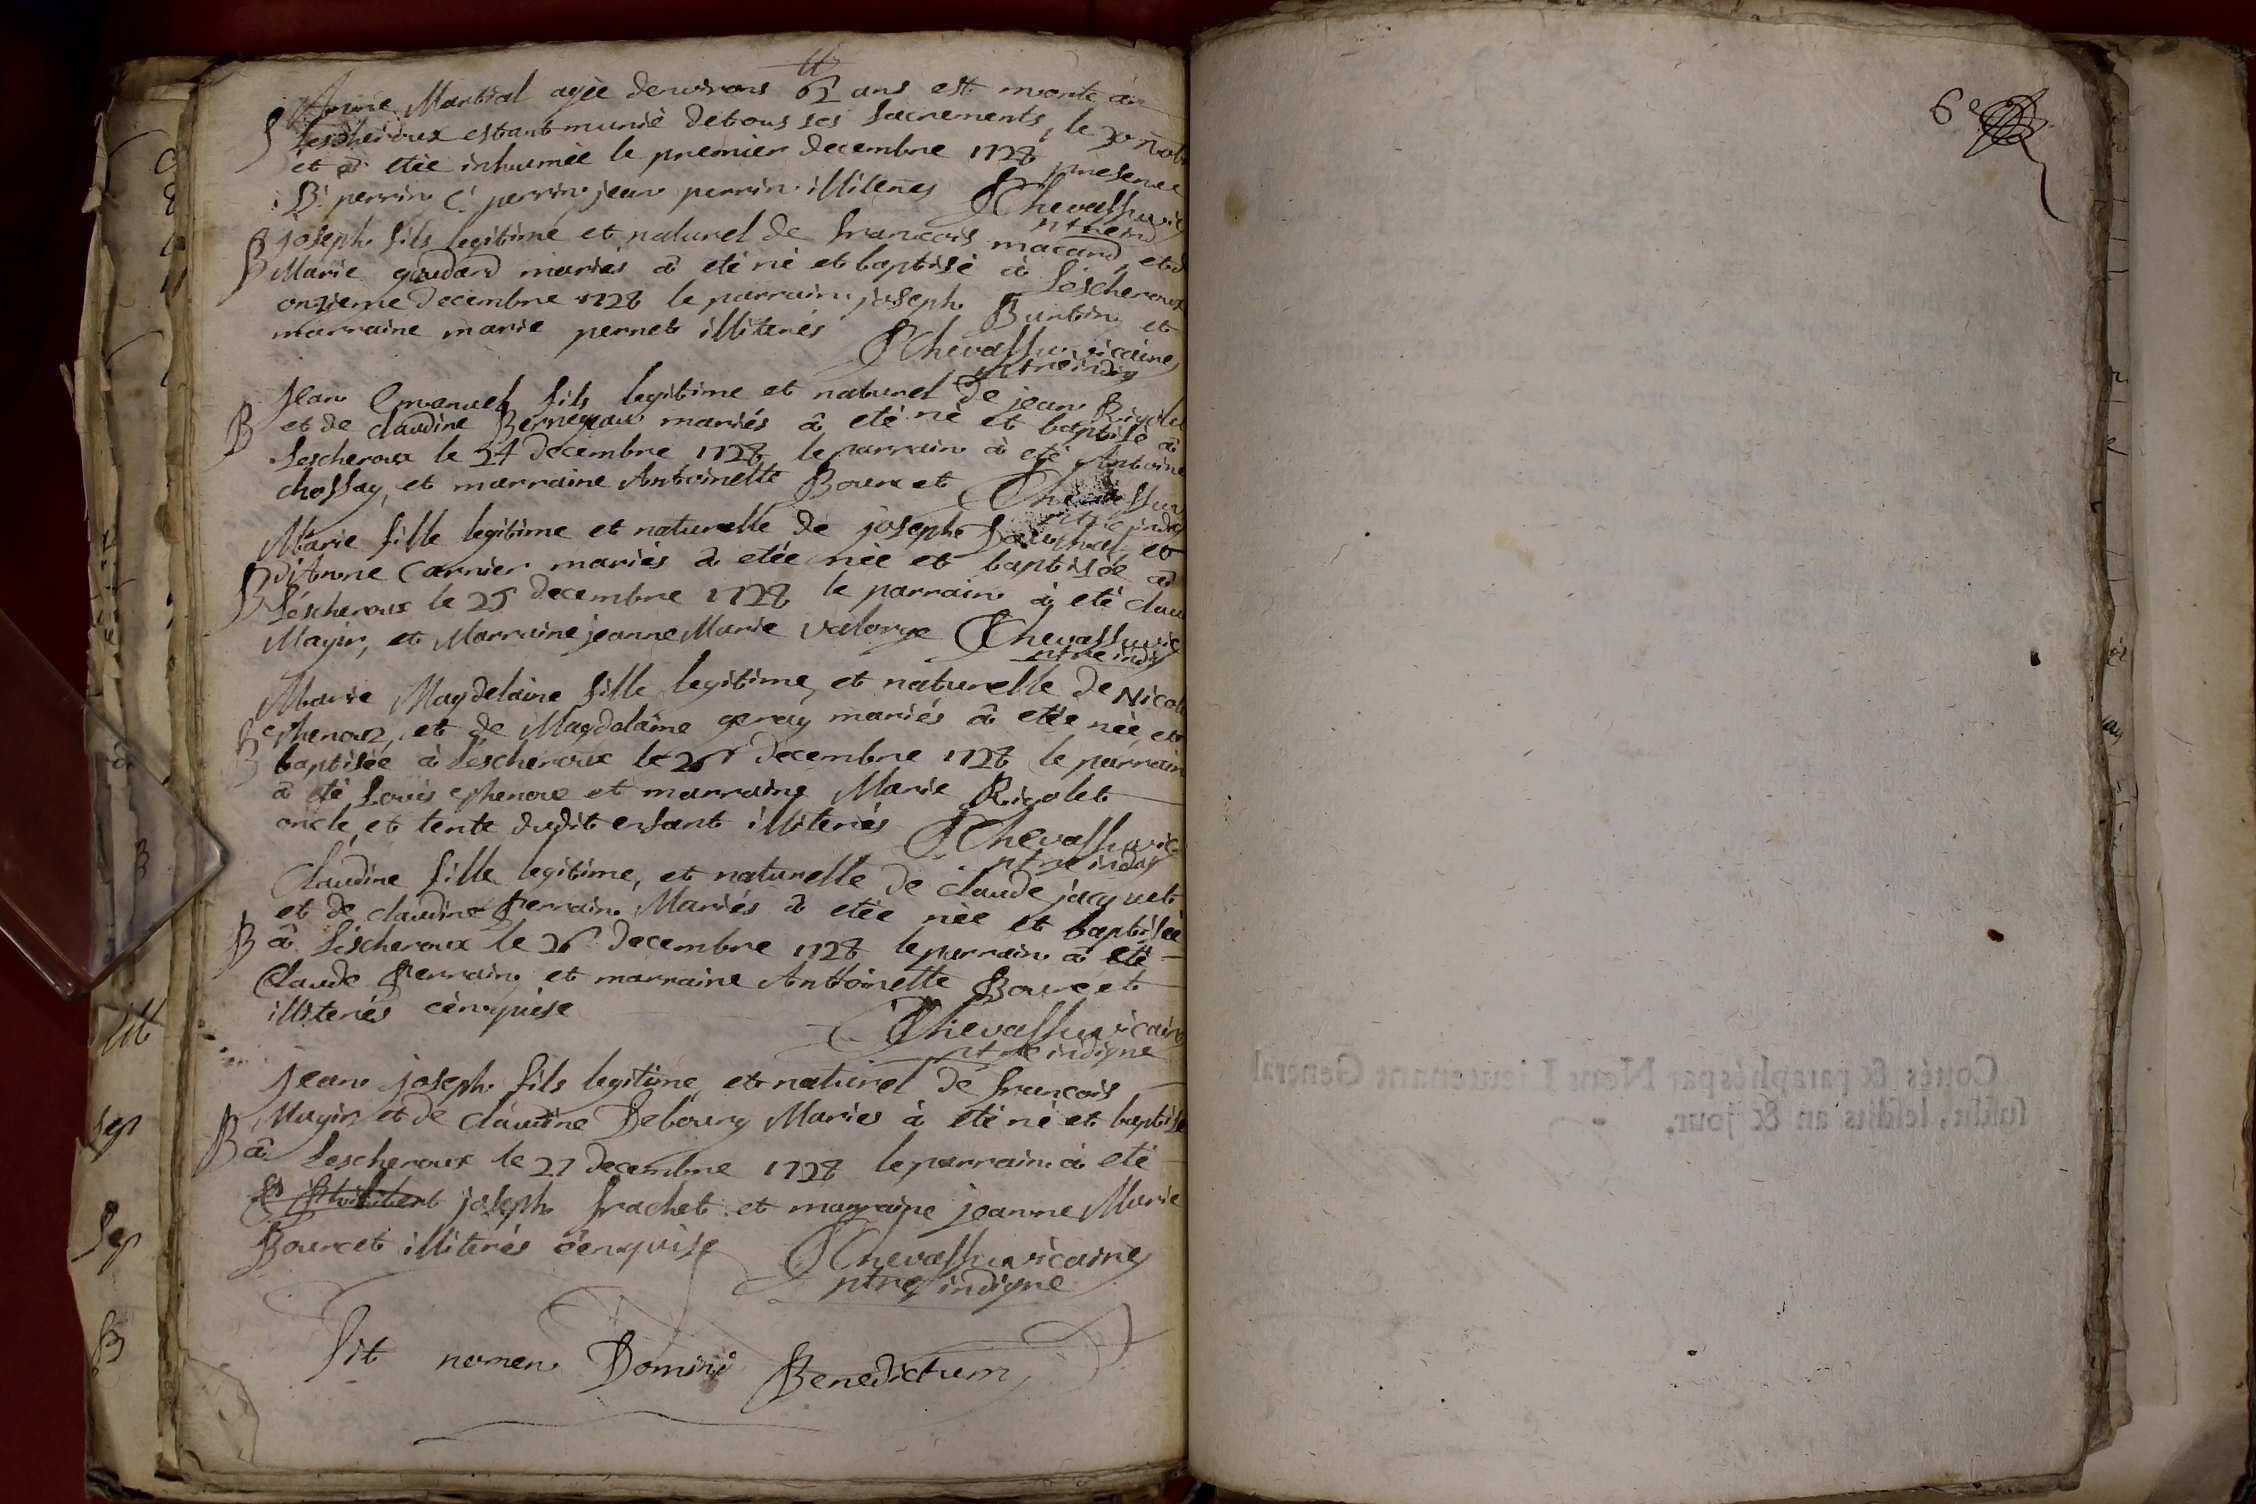 Anne Martial agée denvirons 62 ans est morte à
S Lescheroux estant munie detous ses sacrements, le 30 nobr
et à etée inhumée le premier decembre 1728 presence
B: perrin C: perrin jean perrin illiterés Chevassu vic
ptre ind
joseph fils legitime et naturel de francois macard et d
B Marie gaudard mariés à eté né et baptisé à Léscheroux
onzieme decembre 1728 le parrain joseph Burtin et
marraine marie pernet illiterés Chevassu vicaire
ptre indig
Jean Emanuel fils legitime et naturel de jean Rigolet
B et de claudine Bernegeau mariés à eté né et baptisé à
Lescheroux le 24 decembre 1728 le parrain à eté Antoine
chossay, et marraine Antoinette Bourcet Chevassu
ptre indig
Marie fille legitime et naturelle de joseph et
B d'Anne Carnier mariés à etée née et baptisée à
Léscheroux le 25 decembre 1728 le parrain à eté clau
Mayir, et Marraine jeanne Marie valorge Chevassu vic
ptre indig
Marie Magdelaine fille legitime, et naturelle de Nicol
B phenoux, et de Magdelaine geray mariés à etée née, et
baptisée à Léscheroux le 26 decembre 1728 le parrain
à eté Louis phenoux et marraine Marie Rigolet
oncle, et tente dudit enfant illiterés Chevassu vic
ptre indig
Claudine fille legitime, et naturelle de claude jacquet
et de claudine perrain Mariés à etée née et baptisée
B à Léscheroux le 26 decembre 1728 le parrain à eté
Claude perrain et marraine Anttoinette Bourcet
illiterés cénquise
Chevassu vicaire
ptre indigne
Jean joseph fils legitime et naturel de francois
B Mayir et de claudine Debourg Mariés à eté né et baptisé
à Lescheroux le 27 decembre 1728 le parrain à eté
philibert joseph frachet et marraine jeanne Marie
Bourcet illiterés cénquise Chevassu vicaire
ptre indigne
Sit nomen Domini Benedictum
6e
Cottés & paraphés par Nous Lieutenant General
susdit, lesdits an & jour.